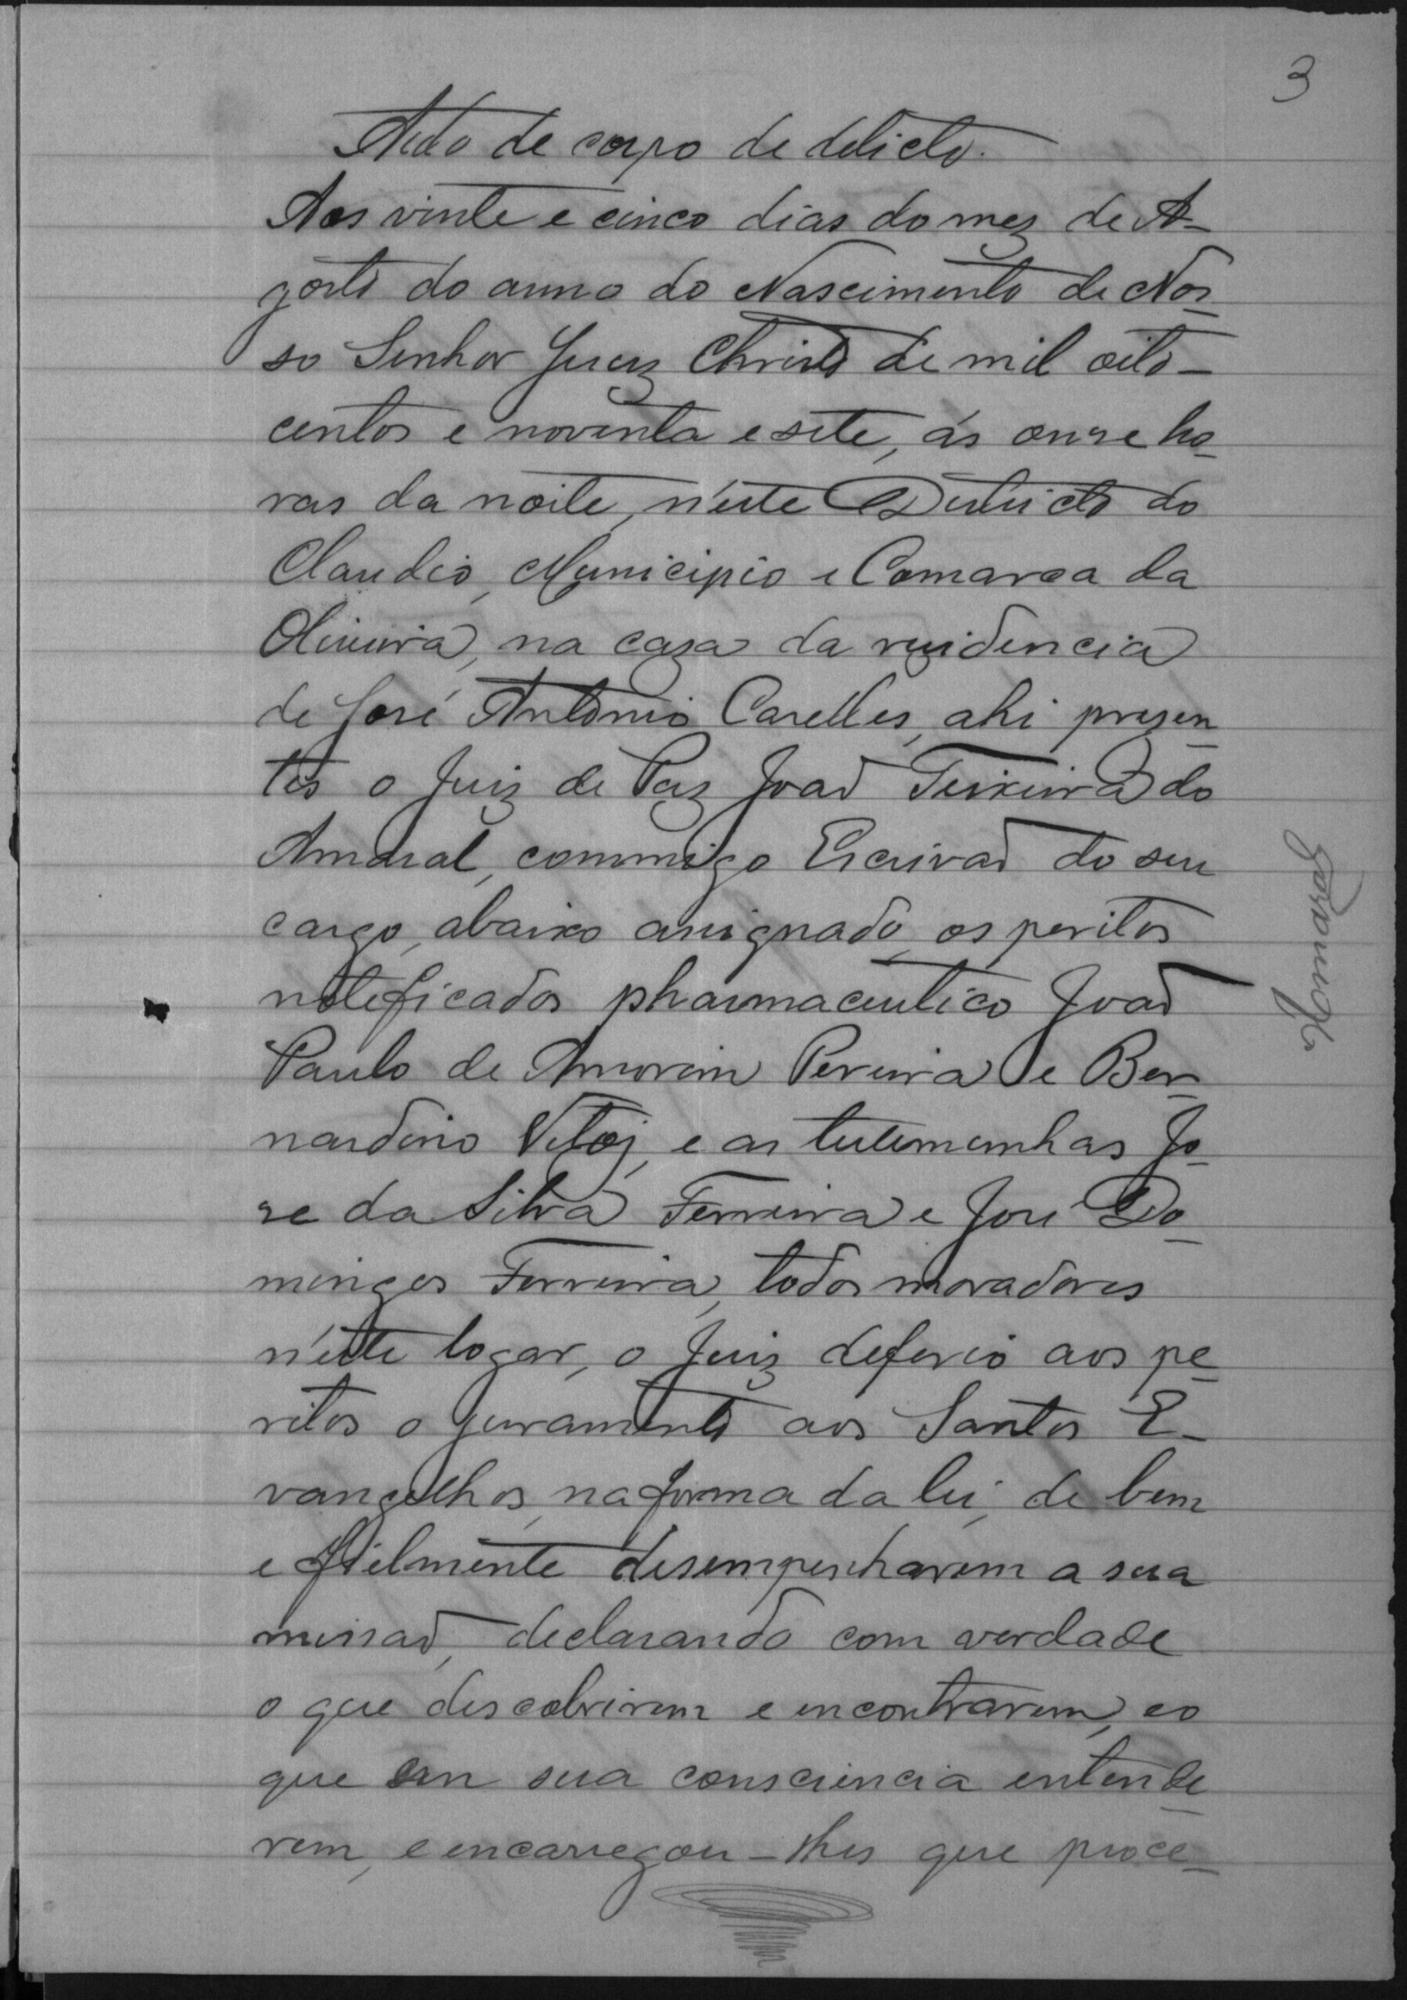 3
Auto de corpo de delicto.
Aos vinte e cinco dias do mez de A-
gosto do anno do Nascimento de Nos-
so Senhor Jesuz Christo de mil oito-
centos e noventa e sete, ás onze ho-
ras da noite, n'este Districto do
Claudio, Municipio e Comarca da
Oliveira, na caza da rezidencia
de José Antonio Carelles, ahi prezen-
tes o Juiz de Paz João Teixeira do
Amaral, commigo Escrivão do seu
cargo, abaixo assignado, os peritos
noteficados pharmaceutico João
Paulo de Amorim Pereira e Ber-
nardino Vitoj, e as testemunhas Jo-
se da Silva Ferreira e José Do-
mingos Ferreira, todos moradores
n'este logar, o Juiz deferio aos pe-
ritos o juramento aos Santos E-
vangelhos, na forma da lei, de bem
e fielmente desempenharem a sua
missão, declarando com verdade
o que descobrirem e encontrarem, e o
que em sua consciencia entende-
rem, e encarregou-lhes que proce-